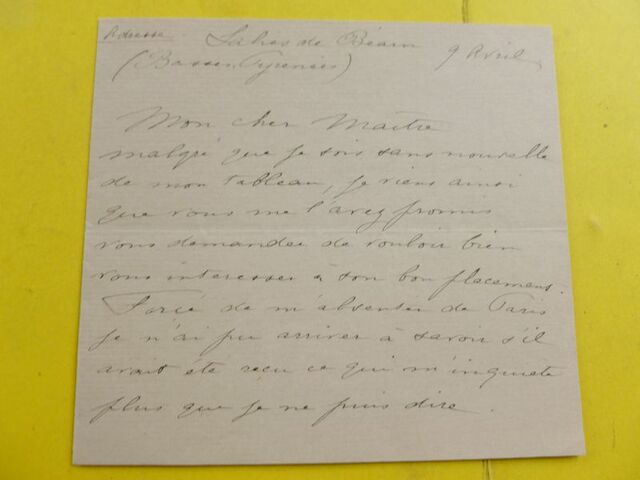 Adresse. Salies de Béarn 9 Avril
(Basses Pyrénées)
Mon cher Maître
malgré que je sois sans nouvelle
de mon tableau, je viens ainsi
que vous me l'avez promis
vous demander de vouloir bien
vous intéresser à son bon placement.
Forcé de m'absenter de Paris
je n'ai pu arriver à savoir s'il
avait été reçu ce qui m'inquiète
plus que je ne puis dire.